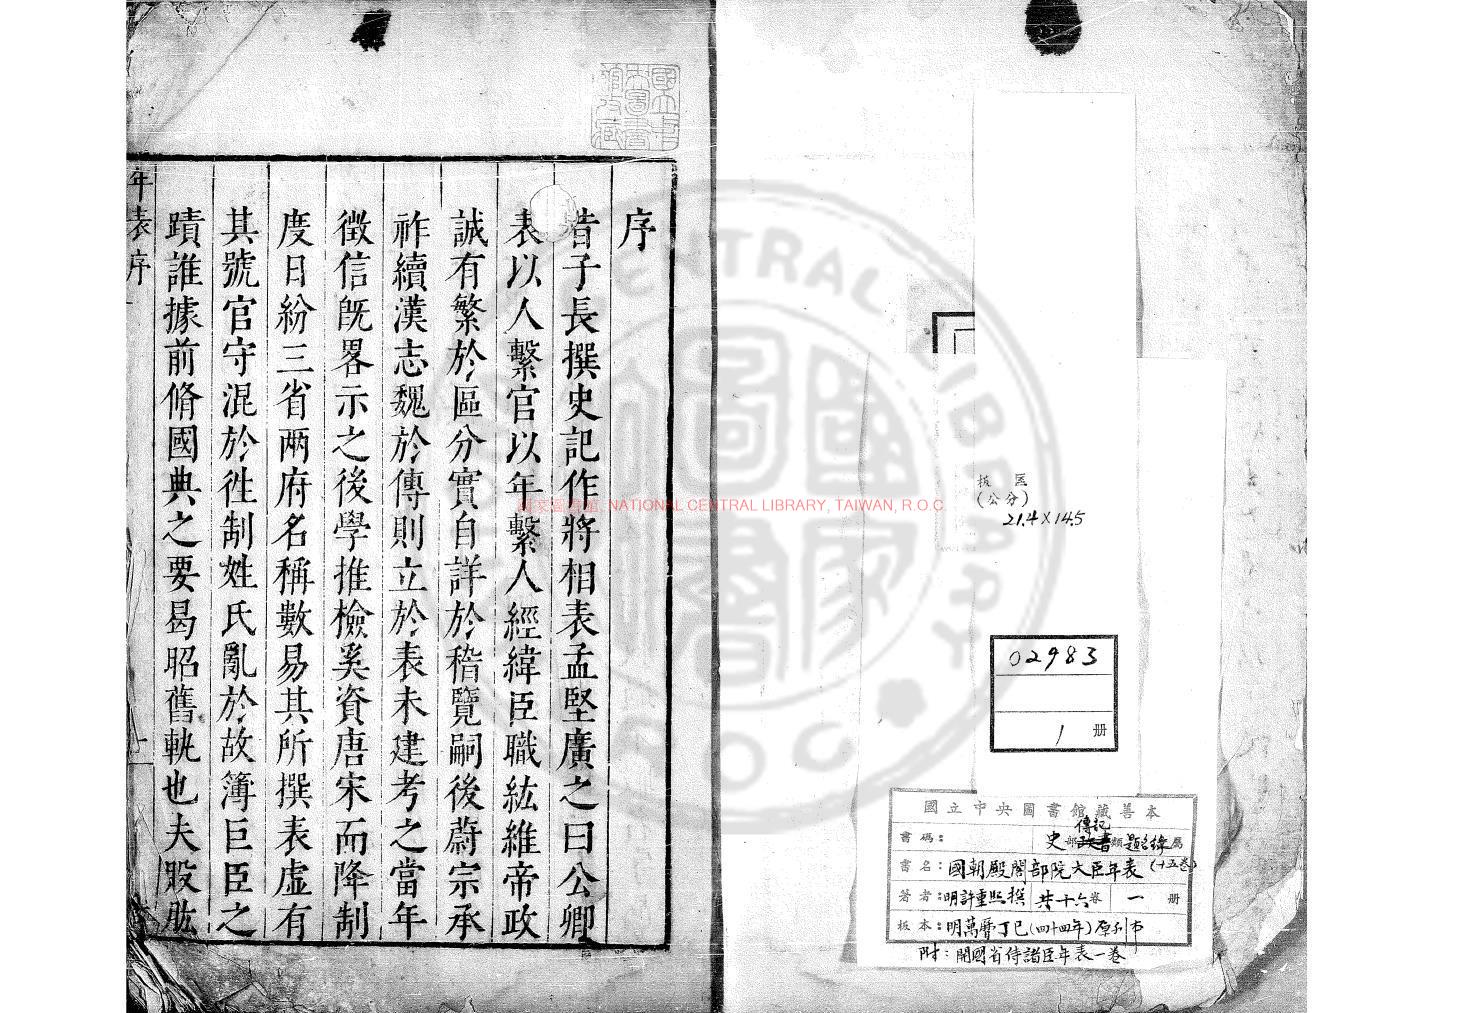 國立中央圖書館藏善本
書碼：
史部傳記類題名錄屬
書名：國朝殿閣部院大臣年表(十五卷)
著者：明許重熙撰 共十六卷 一冊
板本：明萬曆丁巳(四十四年)原刊本
附：開國省侍諸臣年表一卷
02983
1 册
板匡
(公分)
21.4×14.5
國家圖書館, NATIONAL CENTRAL LIBRARY, TAIWAN, R.O.C
序
昔子長撰史記作將相表孟堅廣之曰公卿
表以人繫官以年繫人經緯臣職紘維帝政
誠有繁於區分實自詳於稽覽嗣後蔚宗承
祚續漢志魏於傳則立於表未建考之當年
徵信旣畧示之後學推檢奚資唐宋而降制
度日紛三省兩府名稱數易其所撰表虛有
其號官守混於徃制姓氏亂於故簿巨臣之
蹟誰據前脩國典之要曷昭舊軌也夫股肱
年表序
一